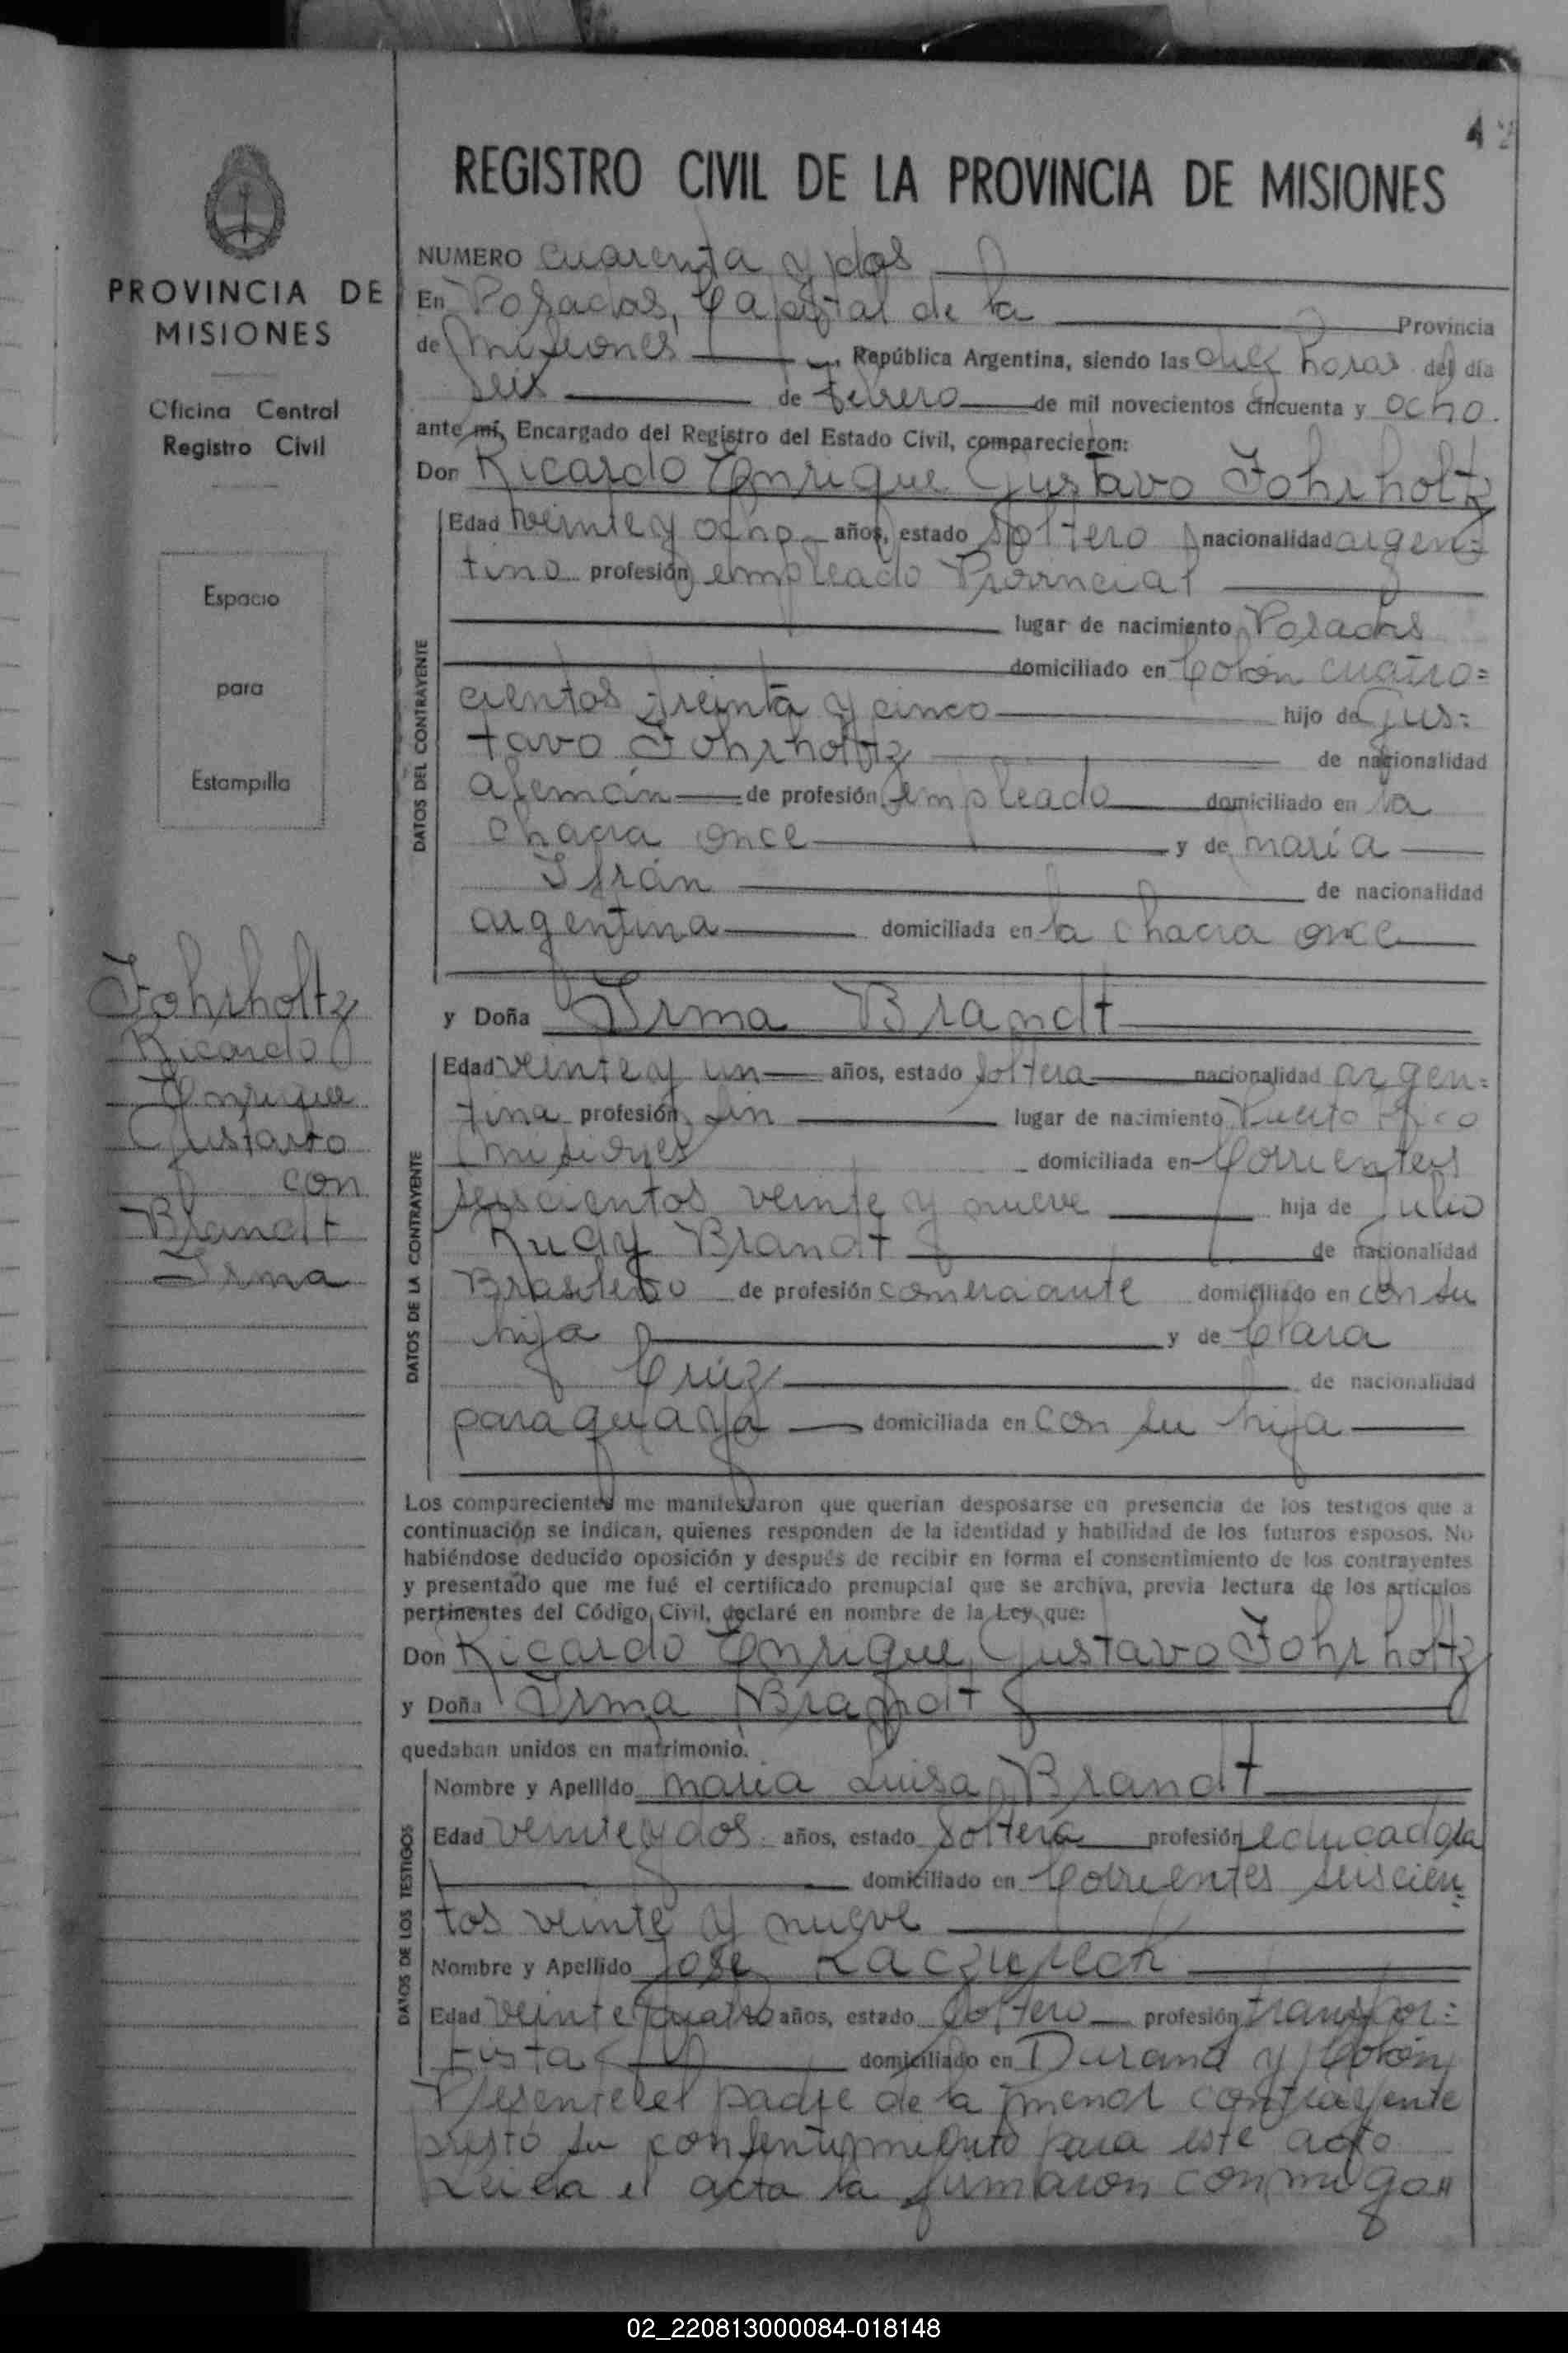 42
REGISTRO CIVIL DE LA PROVINCIA DE MISIONES
PROVINCIA DE
MISIONES
Oficina Central
Registro Civil
Espacio
para
Estampilla
Fohrholtz
Ricardo
Enrique
Gustavo
con
Brandt
Irma
NUMERO cuarenta y dos
En Posadas, Capital de la Provincia
de Misiones República Argentina, siendo las diez horas del día
seis de febrero de mil novecientos cincuenta y ocho.
ante mí, Encargado del Registro del Estado Civil, comparecieron:
Don Ricardo Enrique Gustavo Fohrholtz
DATOS DEL CONTRAYENTE
Edad veinte y ocho años, estado soltero nacionalidad argen=
tino profesión empleado Provincial
lugar de nacimiento Posadas
domiciliado en Colón cuatro=
cientos treinta y cinco hijo de Gus=
tavo Fohrholtz de nacionalidad
alemán de profesión empleado domiciliado en la
chacra once y de maría
Ifrán de nacionalidad
argentina domiciliada en la chacra once
y Doña Irma Brandt
DATOS DE LA CONTRAYENTE
Edad veinte y un años, estado soltera nacionalidad argen=
tina profesión sin lugar de nacimiento Puerto Rico
Misiones domiciliada en Corrientes
seiscientos veinte y nueve hija de Julio
Rudy Brandt de nacionalidad
Brasilero de profesión comerciante domiciliado en con su
hija y de Clara
Crúz de nacionalidad
paraguaya domiciliada en con su hija
Los comparecientes me manifestaron que querían desposarse en presencia de los testigos que a
continuación se indican, quienes responden de la identidad y habilidad de los futuros esposos. No
habiéndose deducido oposición y después de recibir en forma el consentimiento de los contrayentes
y presentado que me fué el certificado prenupcial que se archiva, previa lectura de los artículos
pertinentes del Código Civil, declaré en nombre de la Ley que:
Don Ricardo Enrique Gustavo Fohrholtz
y Doña Irma Brandt
quedaban unidos en matrimonio.
DATOS DE LOS TESTIGOS
Nombre y Apellido maria Luisa Brandt
Edad veinte y dos años, estado soltera profesión educadora
domiciliado en Corrientes seiscien=
tos veinte y nueve
Nombre y Apellido José
Edad veinte cuatro años, estado soltero profesión transpor=
tista domiciliado en Durand y Colón
Presente el padre de la menor contrayente
prestó su consentimiento para este acto
Leida el acta la firmaron conmigo"
02_220813000084-018148